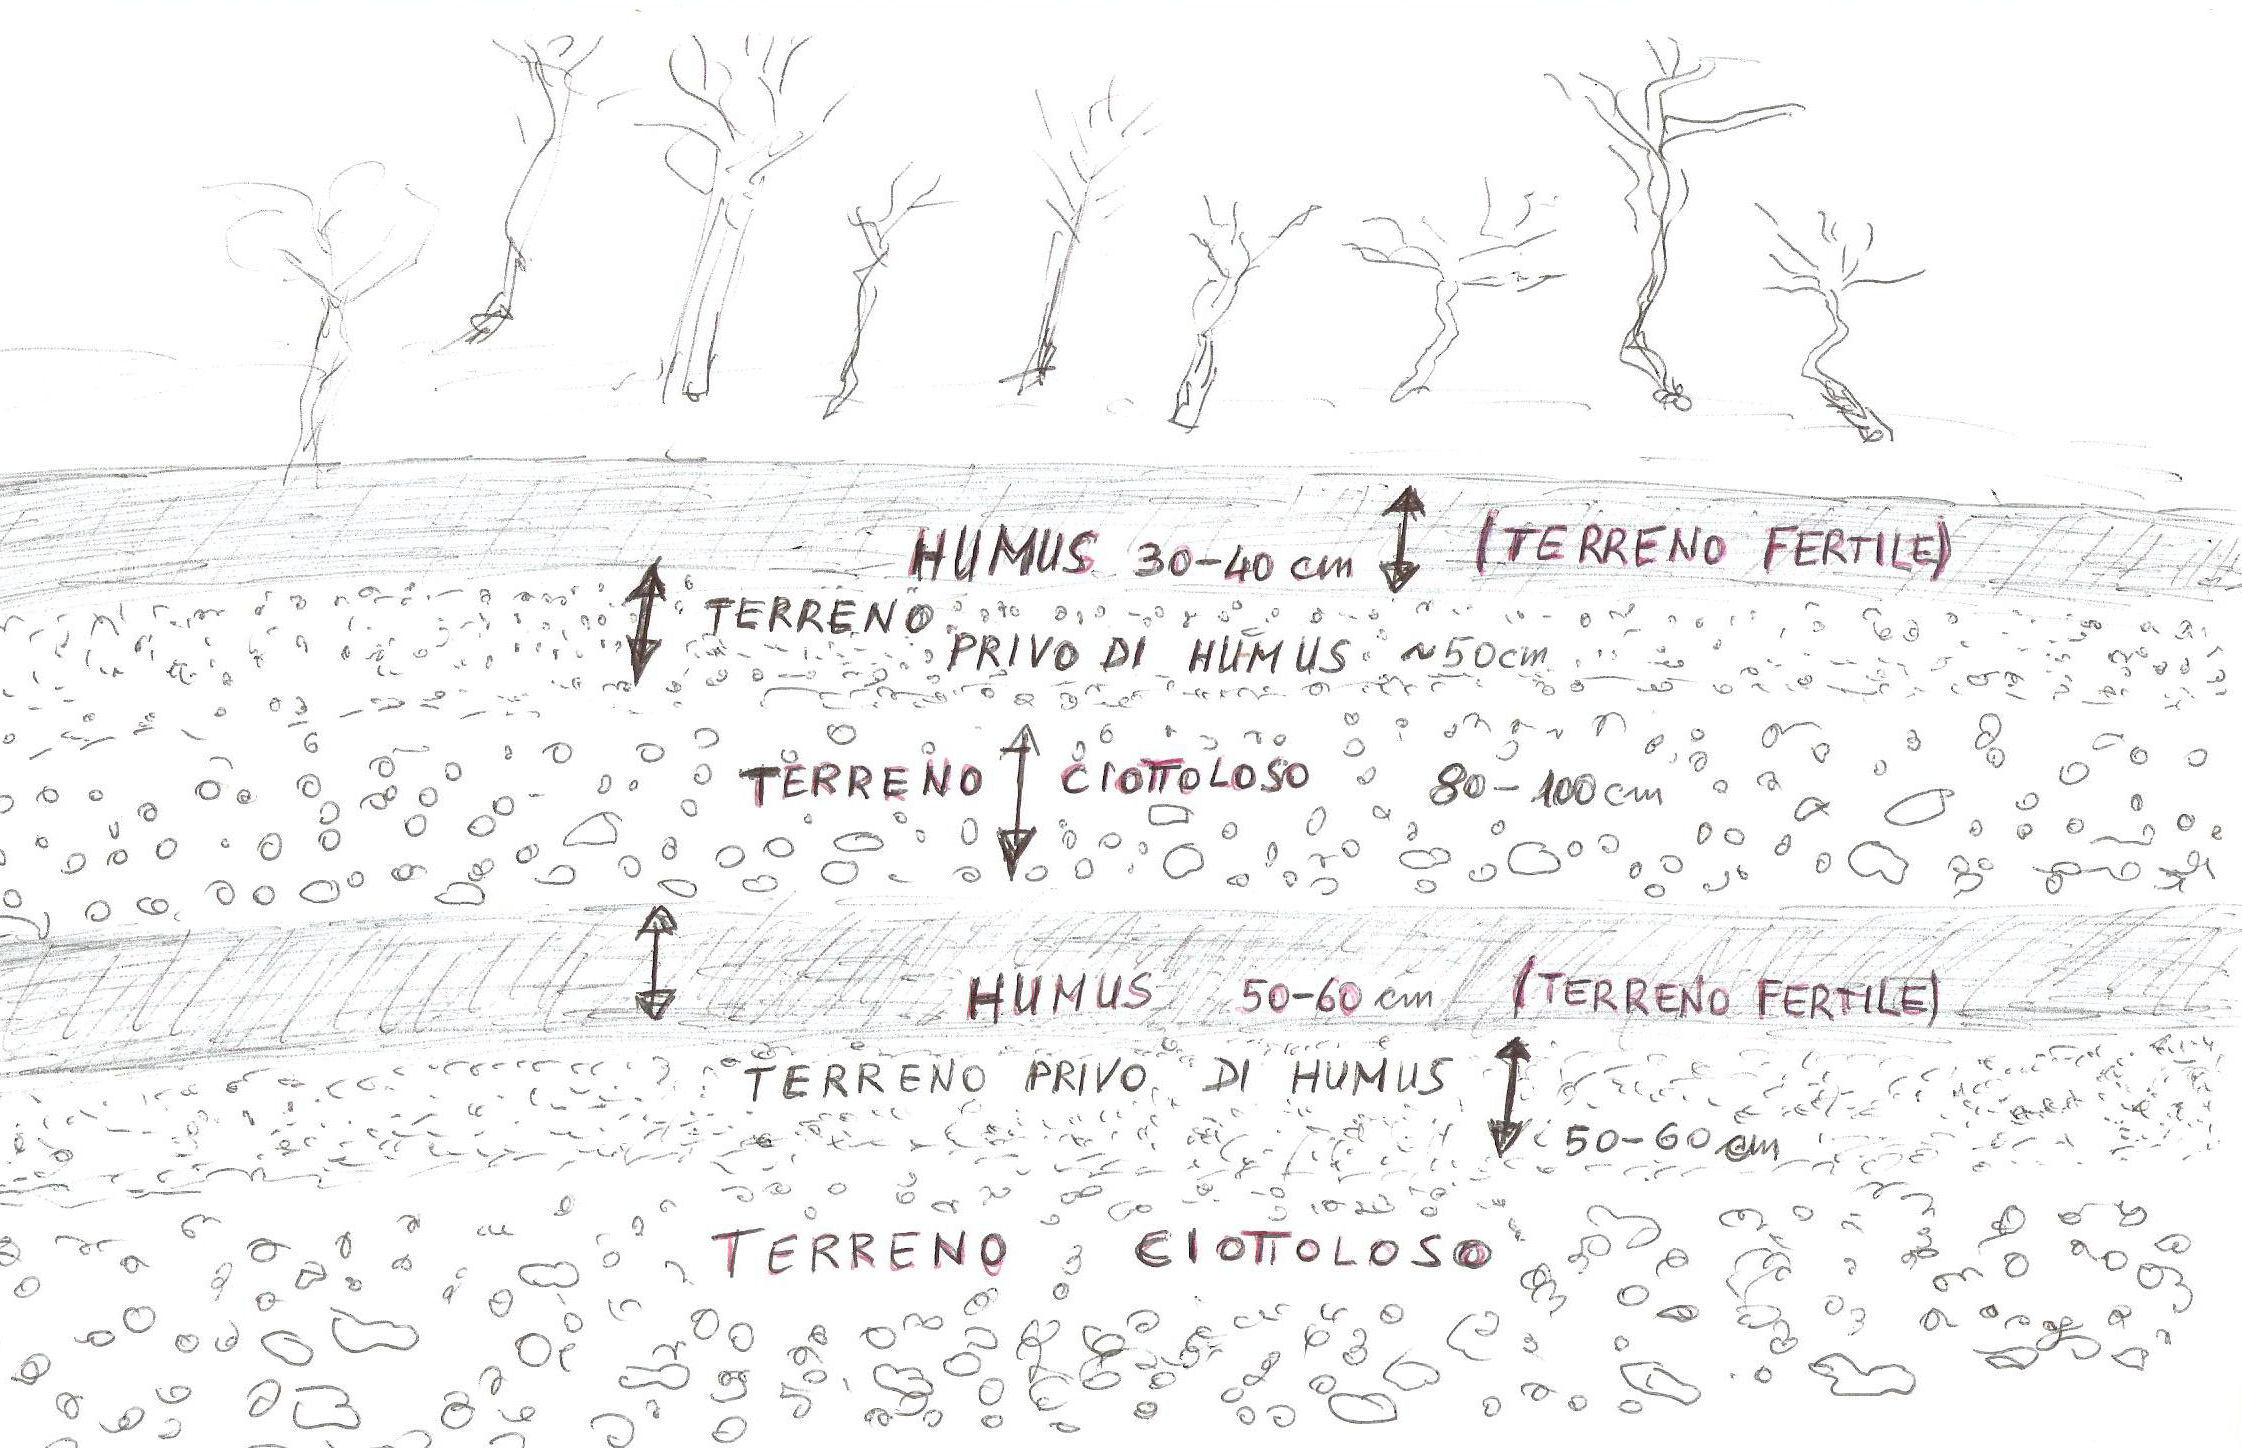 HUMUS 30-40 cm (TERRENO FERTILE)
TERRENO
PRIVO DI HUMUS ~50cm
TERRENO CIOTTOLOSO 80-100cm
HUMUS 50-60 cm (TERRENO FERTILE)
TERRENO PRIVO DI HUMUS
50-60 cm
TERRENO CIOTTOLOSO